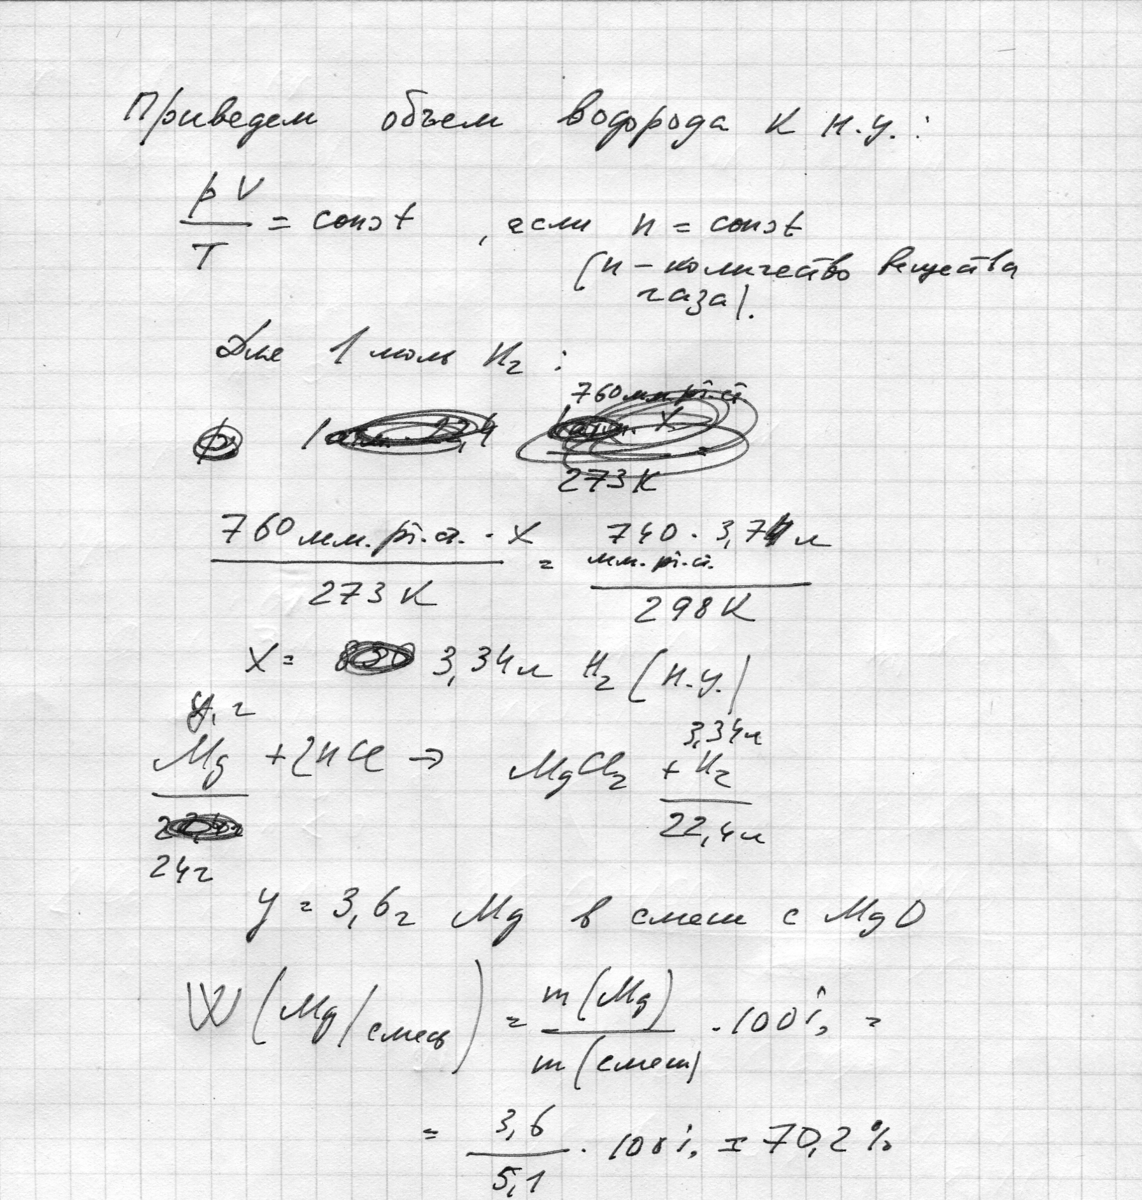 Приведем объем водорода к н.у.:
pV/T = const, если n = const
(n - количество вещества
газа).
Для 1 моль H₂:
760 мм.рт.ст.
273 K
760 мм.рт.ст. · X / 273 K = 740 · 3,74 л мм.рт.ст. / 298 K
X = 3,34 л H₂ (н.у.)
y, г 3,34 л
Mg + 2HCl → MgCl₂ + H₂
22,4 л
24 г
y = 3,6 г Mg в смеси с MgO
W (Mg/смесь) = m(Mg) / m(смеси) · 100% =
= 3,6 / 5,1 · 100% = 70,2%